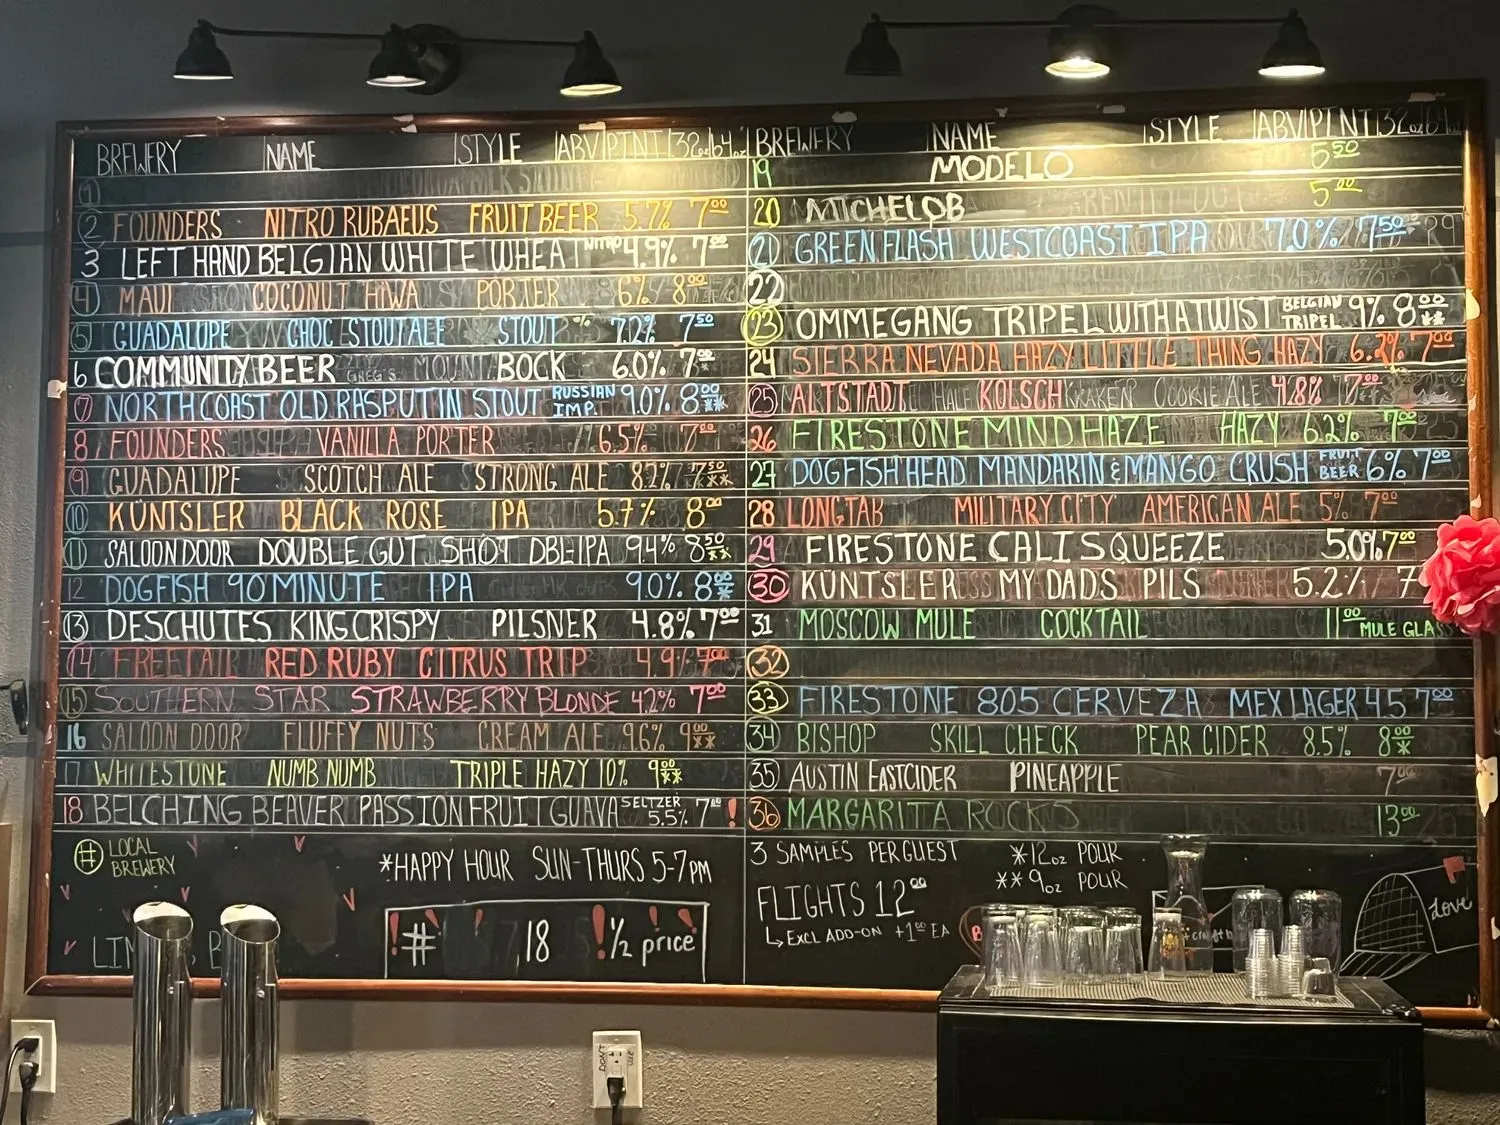 BREWERY NAME STYLE ABV PINT 32oz 64oz
1
2 FOUNDERS NITRO RUBAEUS FRUIT BEER 5.7% 7.00
3 LEFT HAND BELGIAN WHITE WHEAT NITRO 4.9% 7.00
4 MAUI COCONUT HIWA PORTER 6% 8.00
5 GUADALUPE CHOC STOUT ALE STOUT 7.2% 7.50
6 COMMUNITY BEER GREG'S MOUNT BOCK 6.0% 7.00
7 NORTH COAST OLD RASPUTIN STOUT RUSSIAN IMP. 9.0% 8.00 **
8 FOUNDERS VANILLA PORTER 6.5% 7.00
9 GUADALUPE SCOTCH ALE STRONG ALE 8.2% 7.50 **
10 KÜNTSLER BLACK ROSE IPA 5.7% 8.00
11 SALOON DOOR DOUBLE GUT SHOT DBL-IPA 9.4% 8.50 **
12 DOGFISH 90 MINUTE IPA 9.0% 8.00 *
13 DESCHUTES KING CRISPY PILSNER 4.8% 7.00
14 FREETAIL RED RUBY CITRUS TRIP 4.9% 7.00
15 SOUTHERN STAR STRAWBERRY BLONDE 4.2% 7.00
16 SALOON DOOR FLUFFY NUTS CREAM ALE 9.6% 9.00 **
17 WHITESTONE NUMB NUMB TRIPLE HAZY 10% 9.00 **
18 BELCHING BEAVER PASSIONFRUIT GUAVA SELTZER 5.5% 7.00 !
# LOCAL BREWERY
*HAPPY HOUR SUN-THURS 5-7PM
! # ' ' ,18 ! 1/2 price! !
BREWERY NAME STYLE ABV PINT 32oz 64
19 MODELO 5.50
20 MICHELOB 5.00
21 GREEN FLASH WESTCOAST IPA 7.0% 7.50
22
23 OMMEGANG TRIPEL WITH A TWIST BELGIAN TRIPEL 9% 8.00 **
24 SIERRA NEVADA HAZY LITTLE THING HAZY 6.2% 7.00
25 ALTSTADT KOLSCH 4.8% 7.00
26 FIRESTONE MIND HAZE HAZY 6.2% 7.00
27 DOGFISH HEAD MANDARIN & MANGO CRUSH FRUIT BEER 6% 7.00
28 LONGTAB MILITARY CITY AMERICAN ALE 5% 7.00
29 FIRESTONE CALI SQUEEZE 5.0% 7.00
30 KÜNTSLER MY DADS PILS 5.2% 7
31 MOSCOW MULE COCKTAIL 11.00 MULE GLA
32
33 FIRESTONE 805 CERVEZA MEX LAGER 4.5 7.00
34 BISHOP SKILL CHECK PEAR CIDER 8.5% 8.00 *
35 AUSTIN EASTCIDER PINEAPPLE 7.00
36 MARGARITA ROCKS 13.00
3 SAMPLES PER GUEST
*12oz POUR
**9oz POUR
FLIGHTS 12.00
↳ EXCL ADD-ON +1.00 EA
Love
DON'T USE